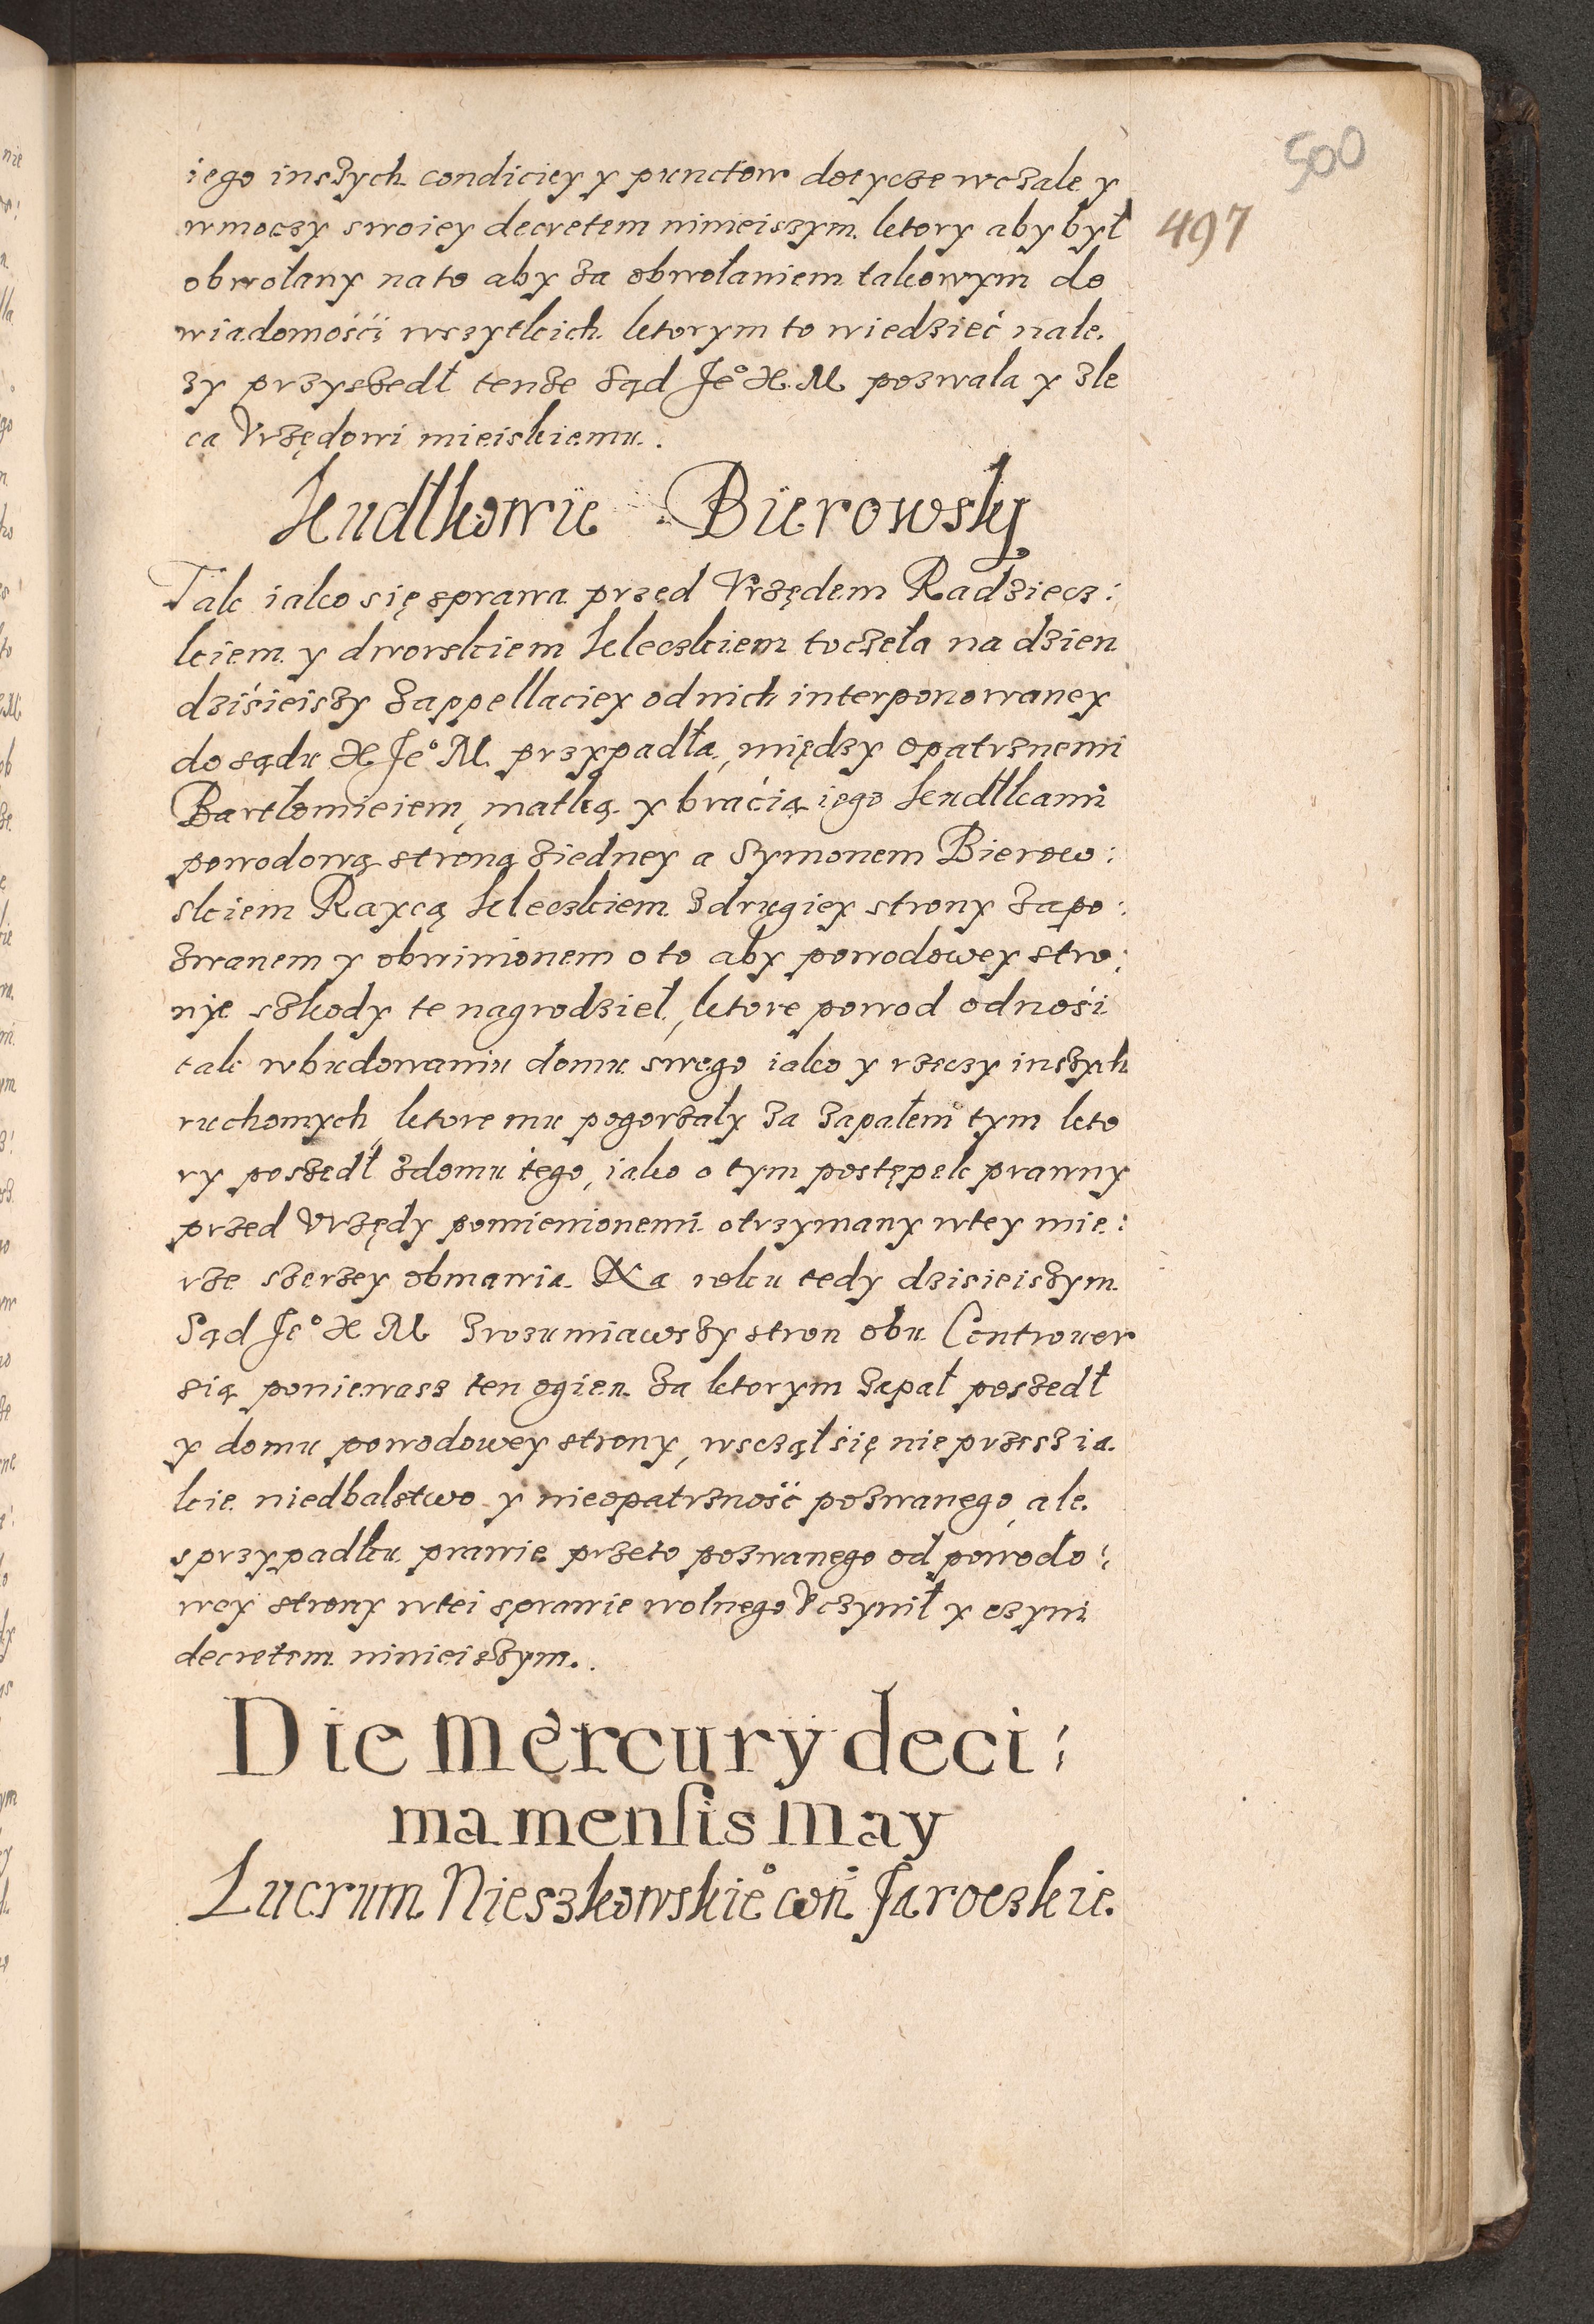 500
497
iego inszych condiciey y punctow dotycze wczale y
wmoczy swoiey decretem ninieiszym ktory aby był
obwołany na to aby za obwołaniem takowym do
wiadomośći wszytkich ktorym to wiedzieć nale
zy przyszedł tenze Sąd Je° K M pozwala y zle
ca Vrzędowi mieiskiemu.
Kudłkowie Bierowsky
Tak iako się sprawa przed Vrzędem Radziecz:
kiem y dworskiem Kleczkiem toczeła na dzien
dziśieiszy zappellaciey od nich interponowaney
do sądu K Je° M przypadła, między opatrznemi
Bartłomieiem, matką y braćią iego Kudłkami
powodową stroną ziedney a Szymonem Bierow:
skiem Raycą Kleczkiem zdrugiey strony zapo:
zwanem y obwinionem o to aby powodowey stro:
nie szkody te nagrodzieł, ktore powod odnośi
tak wbudowaniu domu swego iako y rzeczy inszych
ruchomych, ktore mu pogorzały za zapałem tym kto
ry poszedł zdomu tego, iako o tym postępek prawny
przed Vrzędy pomienionemi otrzymany wtey mie:
rze szerzey obmawia. Na roku tedy dzisieiszym
Sąd Je° K M zrozumiawszy stron obu Controuer
sią poniewasz ten ogien za ktorym zapał poszedł
y domu powodowey strony, wsczął się nie przesz ia
kie niedbalstwo y nieopatrzność pozwanego, ale
sprzypadku prawie przeto pozwanego od powodo:
wey strony wtei sprawie wolnego Vczynił y czyni
decretem ninieiszym.
Die Mercury deci:
ma menſis May
Lucrum Nieszkowskie° con Jaroczkie.